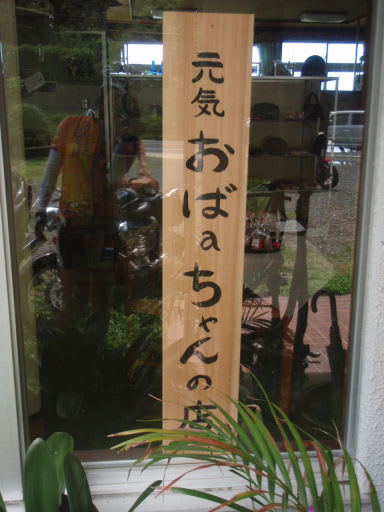 元気おばaちゃんの店